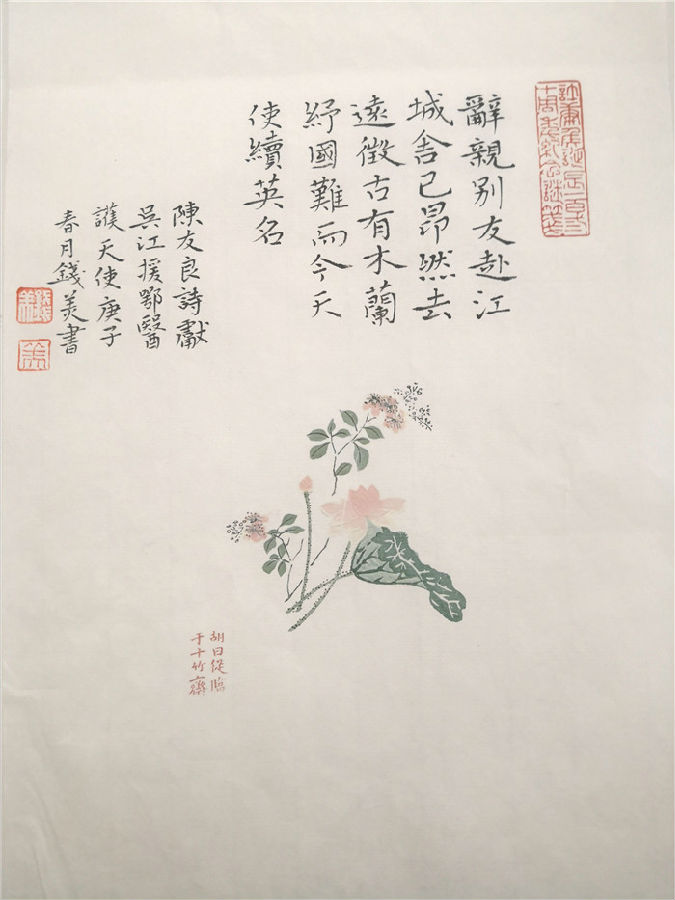 辭親别友赴江
城舍己昂然去
遠徵古有木蘭
紓國難而今天
使續英名
陳友良詩獻
吳江援鄂醫
護天使庚子
春月錢羙書
胡曰從臨
于十竹齋